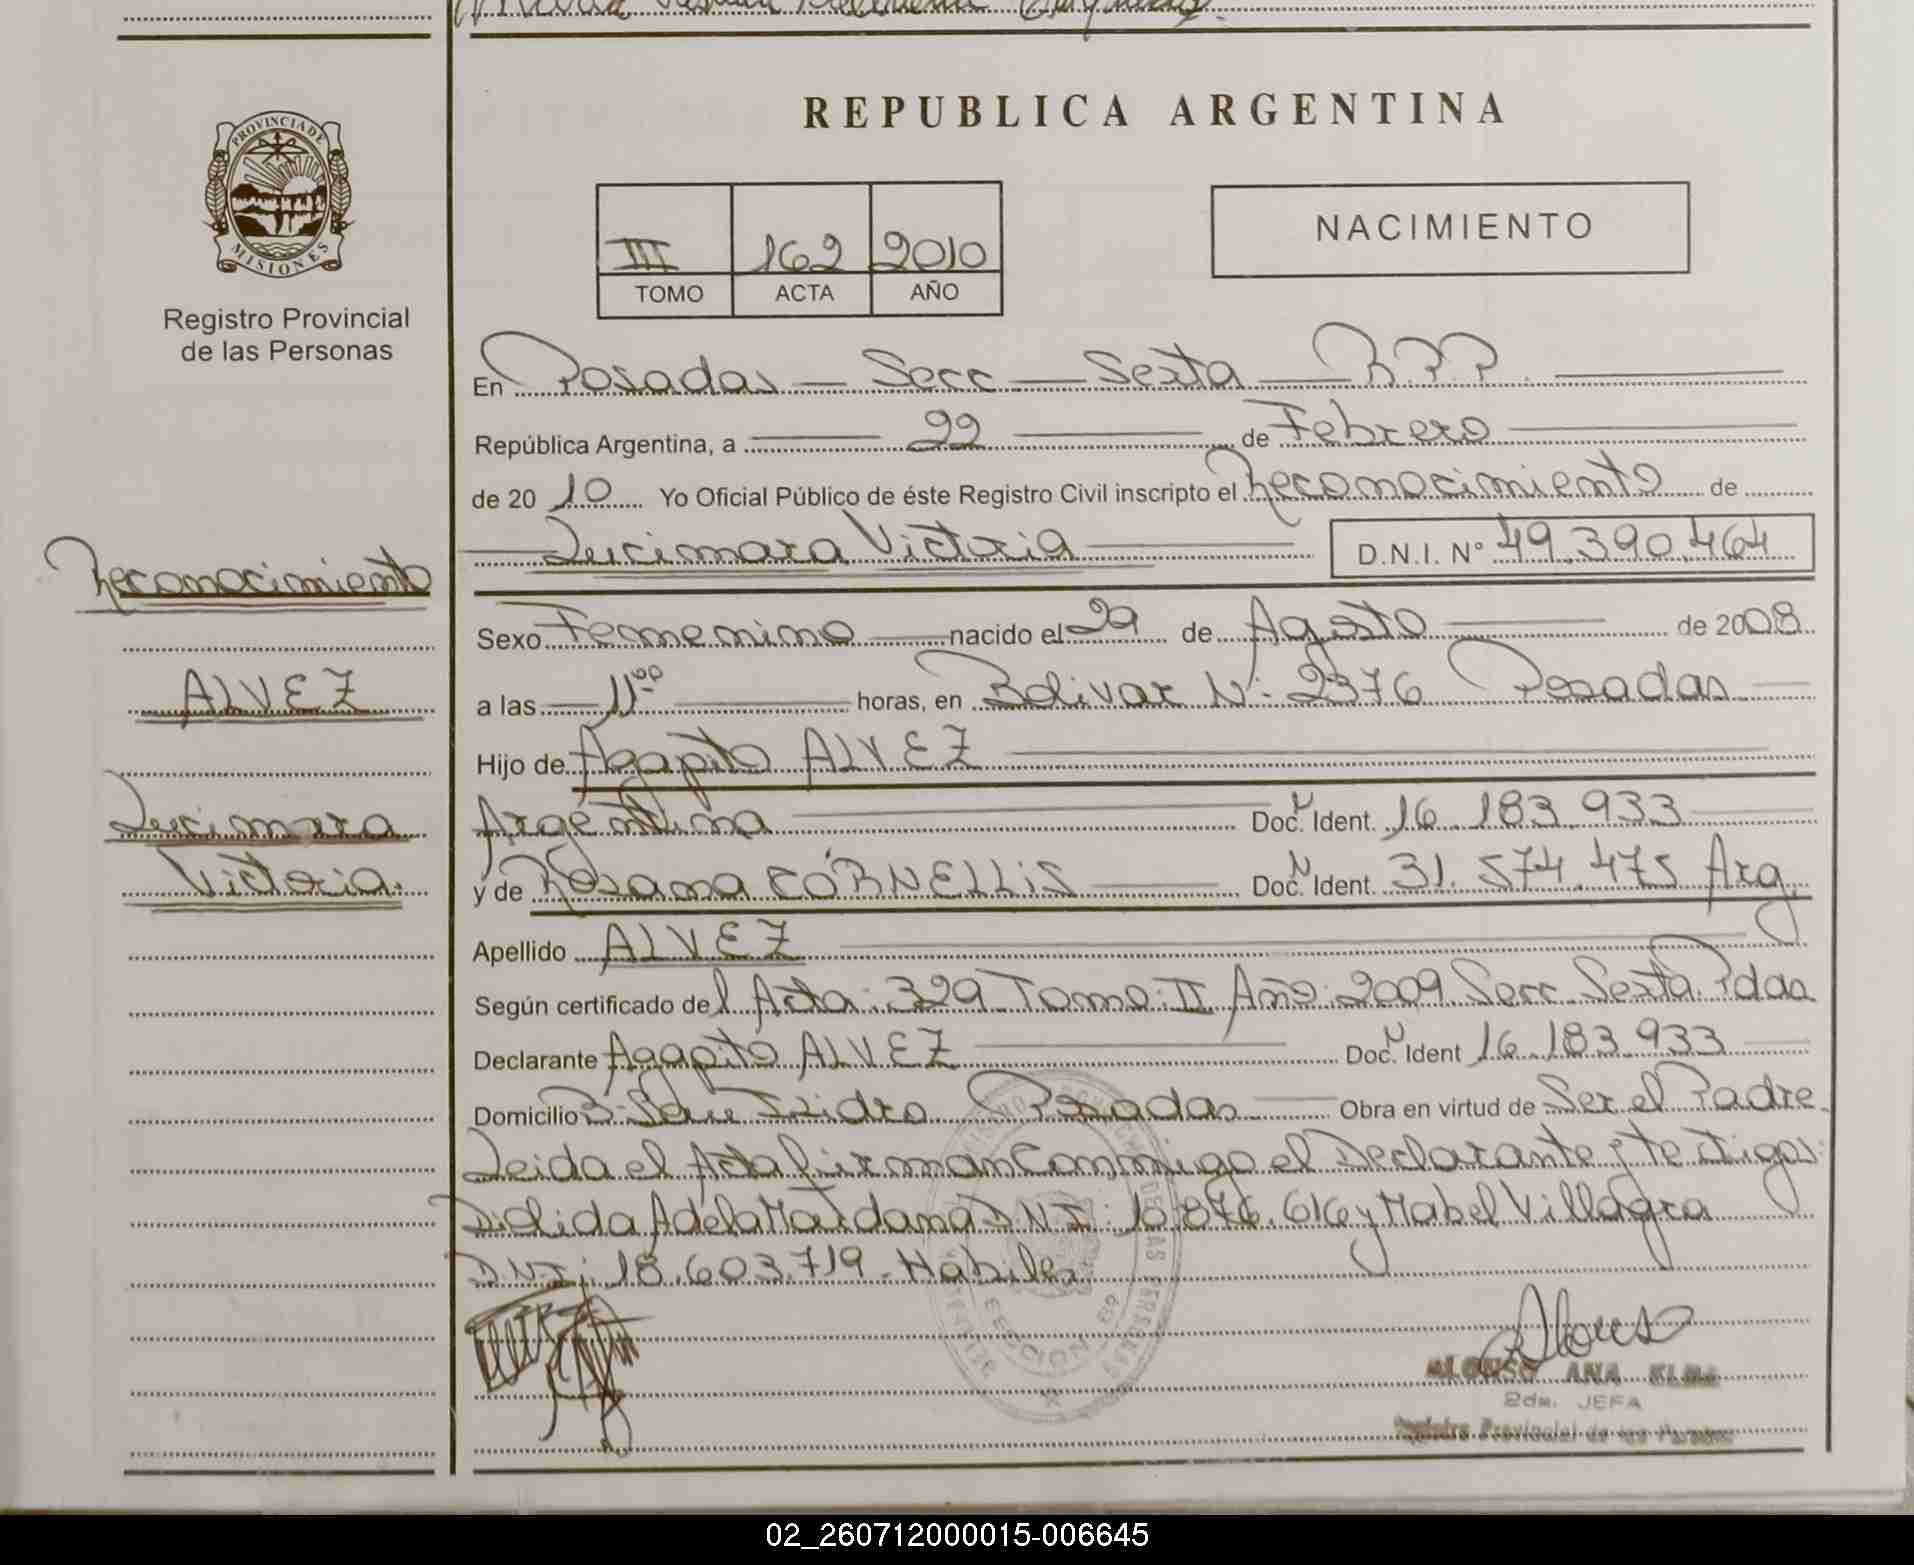 REPUBLICA ARGENTINA
PROVINCIA DE
MISIONES
Registro Provincial
de las Personas
III 162 2010
TOMO ACTA AÑO
NACIMIENTO
En Posadas — Secc — Sexta — R.P.P.
República Argentina, a 22 de Febrero
de 2010 Yo Oficial Público de éste Registro Civil inscripto el Reconocimiento de
Lucimara Victoria D.N.I. N° 49.390.464
Reconocimiento
ALVEZ
Lucimara
Victoria.
Sexo Femenino nacido el 29 de Agosto de 2008
a las 11 oo horas, en Bolivar N: 2376 Posadas
Hijo de Agapito ALVEZ
Argentina Doc. N Ident. 16.183.933
y de Rosana CORNELLIS Doc. N Ident. 31.574.475 Arg.
Apellido ALVEZ
Según certificado del Acta: 329 Tomo: II Año: 2009 Secc Sexta. Pdas
Declarante Agapito ALVEZ Doc. N Ident 16.183.933
Domicilio B: San Izidro Posadas Obra en virtud de Ser el Padre.
Leida el Acta firman Conmigo el Declarante y testigos:
Adela Maidana D.N.I: 10.876.616 y Mabel Villagra
D.N.I: 18.603.719 - Habiles
SECCION 6a
ALONSO ANA ELBA
2da. JEFA
Registro Provincial de las Personas
02_260712000015-006645